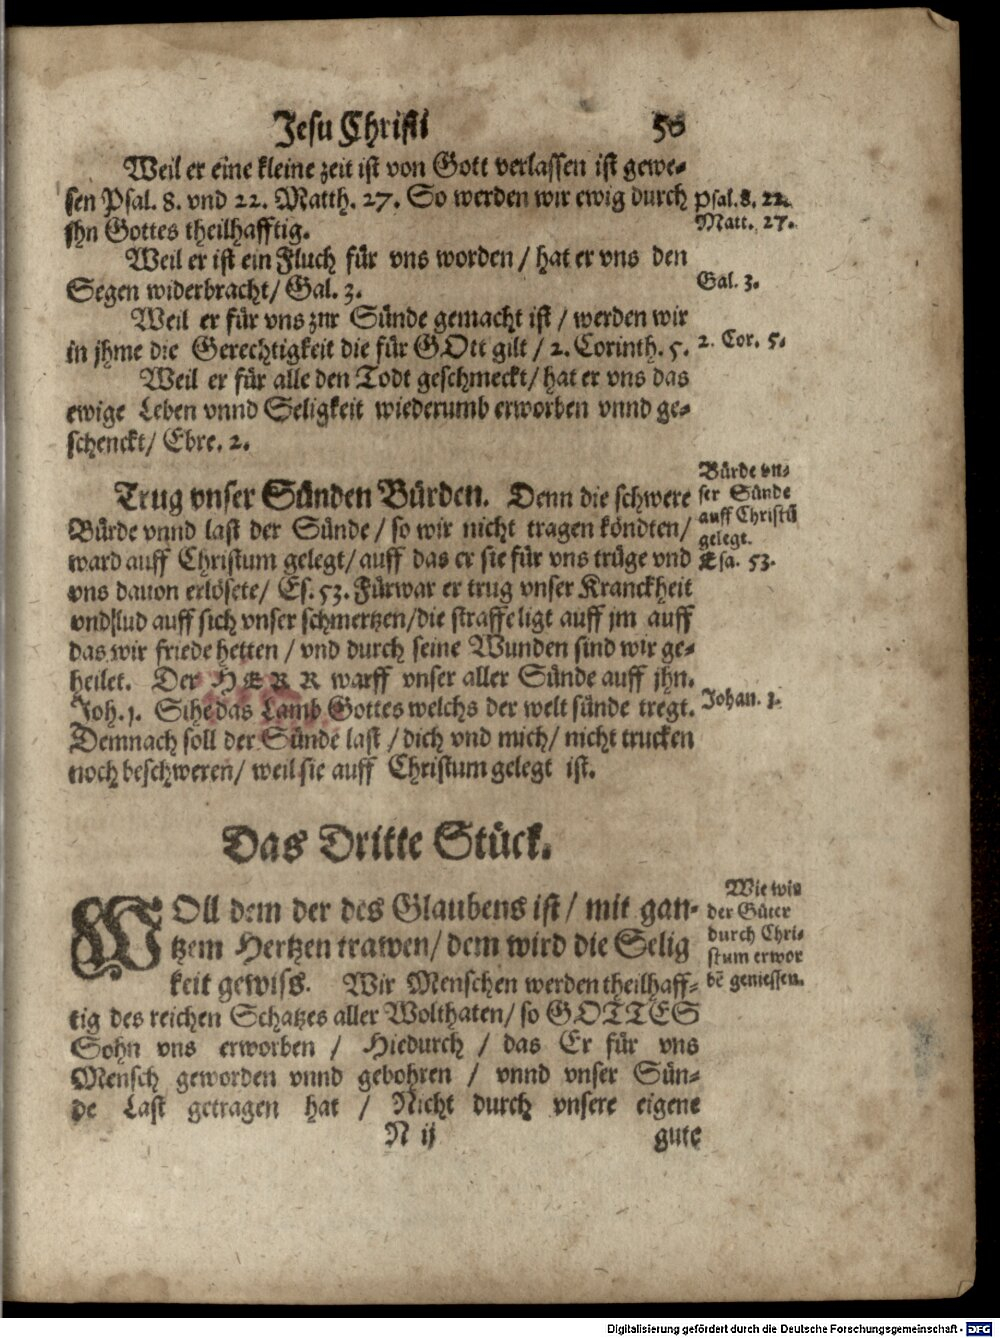 Jesu Christi 50
Weil er eine kleine zeit ist von Gott verlassen ist gewe-
sen Psal. 8. vnd 22. Matth. 27. So werden wir ewig durch
jhn Gottes theilhafftig.
Psal. 8. 22.
Matt. 27.
Weil er ist ein Fluch für vns worden / hat er vns den
Segen widerbracht / Gal. 3.
Gal. 3.
Weil er für vns zur Sünde gemacht ist / werden wir
in jhme die Gerechtigkeit die für GOtt gilt / 2. Corinth. 5.
2. Cor. 5.
Weil er für alle den Todt geschmeckt / hat er vns das
ewige Leben vnnd Seligkeit wiederumb erworben vnnd ge-
schenckt / Ebre. 2.
Trug vnser Sünden Bürden. Denn die schwere
Bürde vnnd last der Sünde / so wir nicht tragen köndten /
ward auff Christum gelegt / auff das er sie für vns trüge vnd
vns dauon erlösete / Es. 53. Fürwar er trug vnser Kranckheit
vnd lud auff sich vnser schmertzen / die straffe ligt auff jm auff
das wir friede hetten / vnd durch seine Wunden sind wir ge-
heilet. Der HERR warff vnser aller Sünde auff jhn.
Joh. 1. Sihe das Lamb Gottes welchs der welt sünde tregt.
Demnach soll der Sünde last / dich vnd mich / nicht trucken
noch beschweren / weil sie auff Christum gelegt ist.
Bürde vn-
ser Sünde
auff Christū
gelegt.
Esa. 53.
Johan. 1.
Das Dritte Stück.
WOll dem der des Glaubens ist / mit gan-
tzem Hertzen trawen / dem wird die Selig
keit gewiss. Wir Menschen werden theilhaff-
tig des reichen Schatzes aller Wolthaten / so GOTTES
Sohn vns erworben / Hiedurch / das Er für vns
Mensch geworden vnnd gebohren / vnnd vnser Sün-
de Last getragen hat / Nicht durch vnsere eigene
Wie wir
der Güter
durch Chri-
stum erwor
bē geniessen.
N ij gute
Digitalisierung gefördert durch die Deutsche Forschungsgemeinschaft - DFG